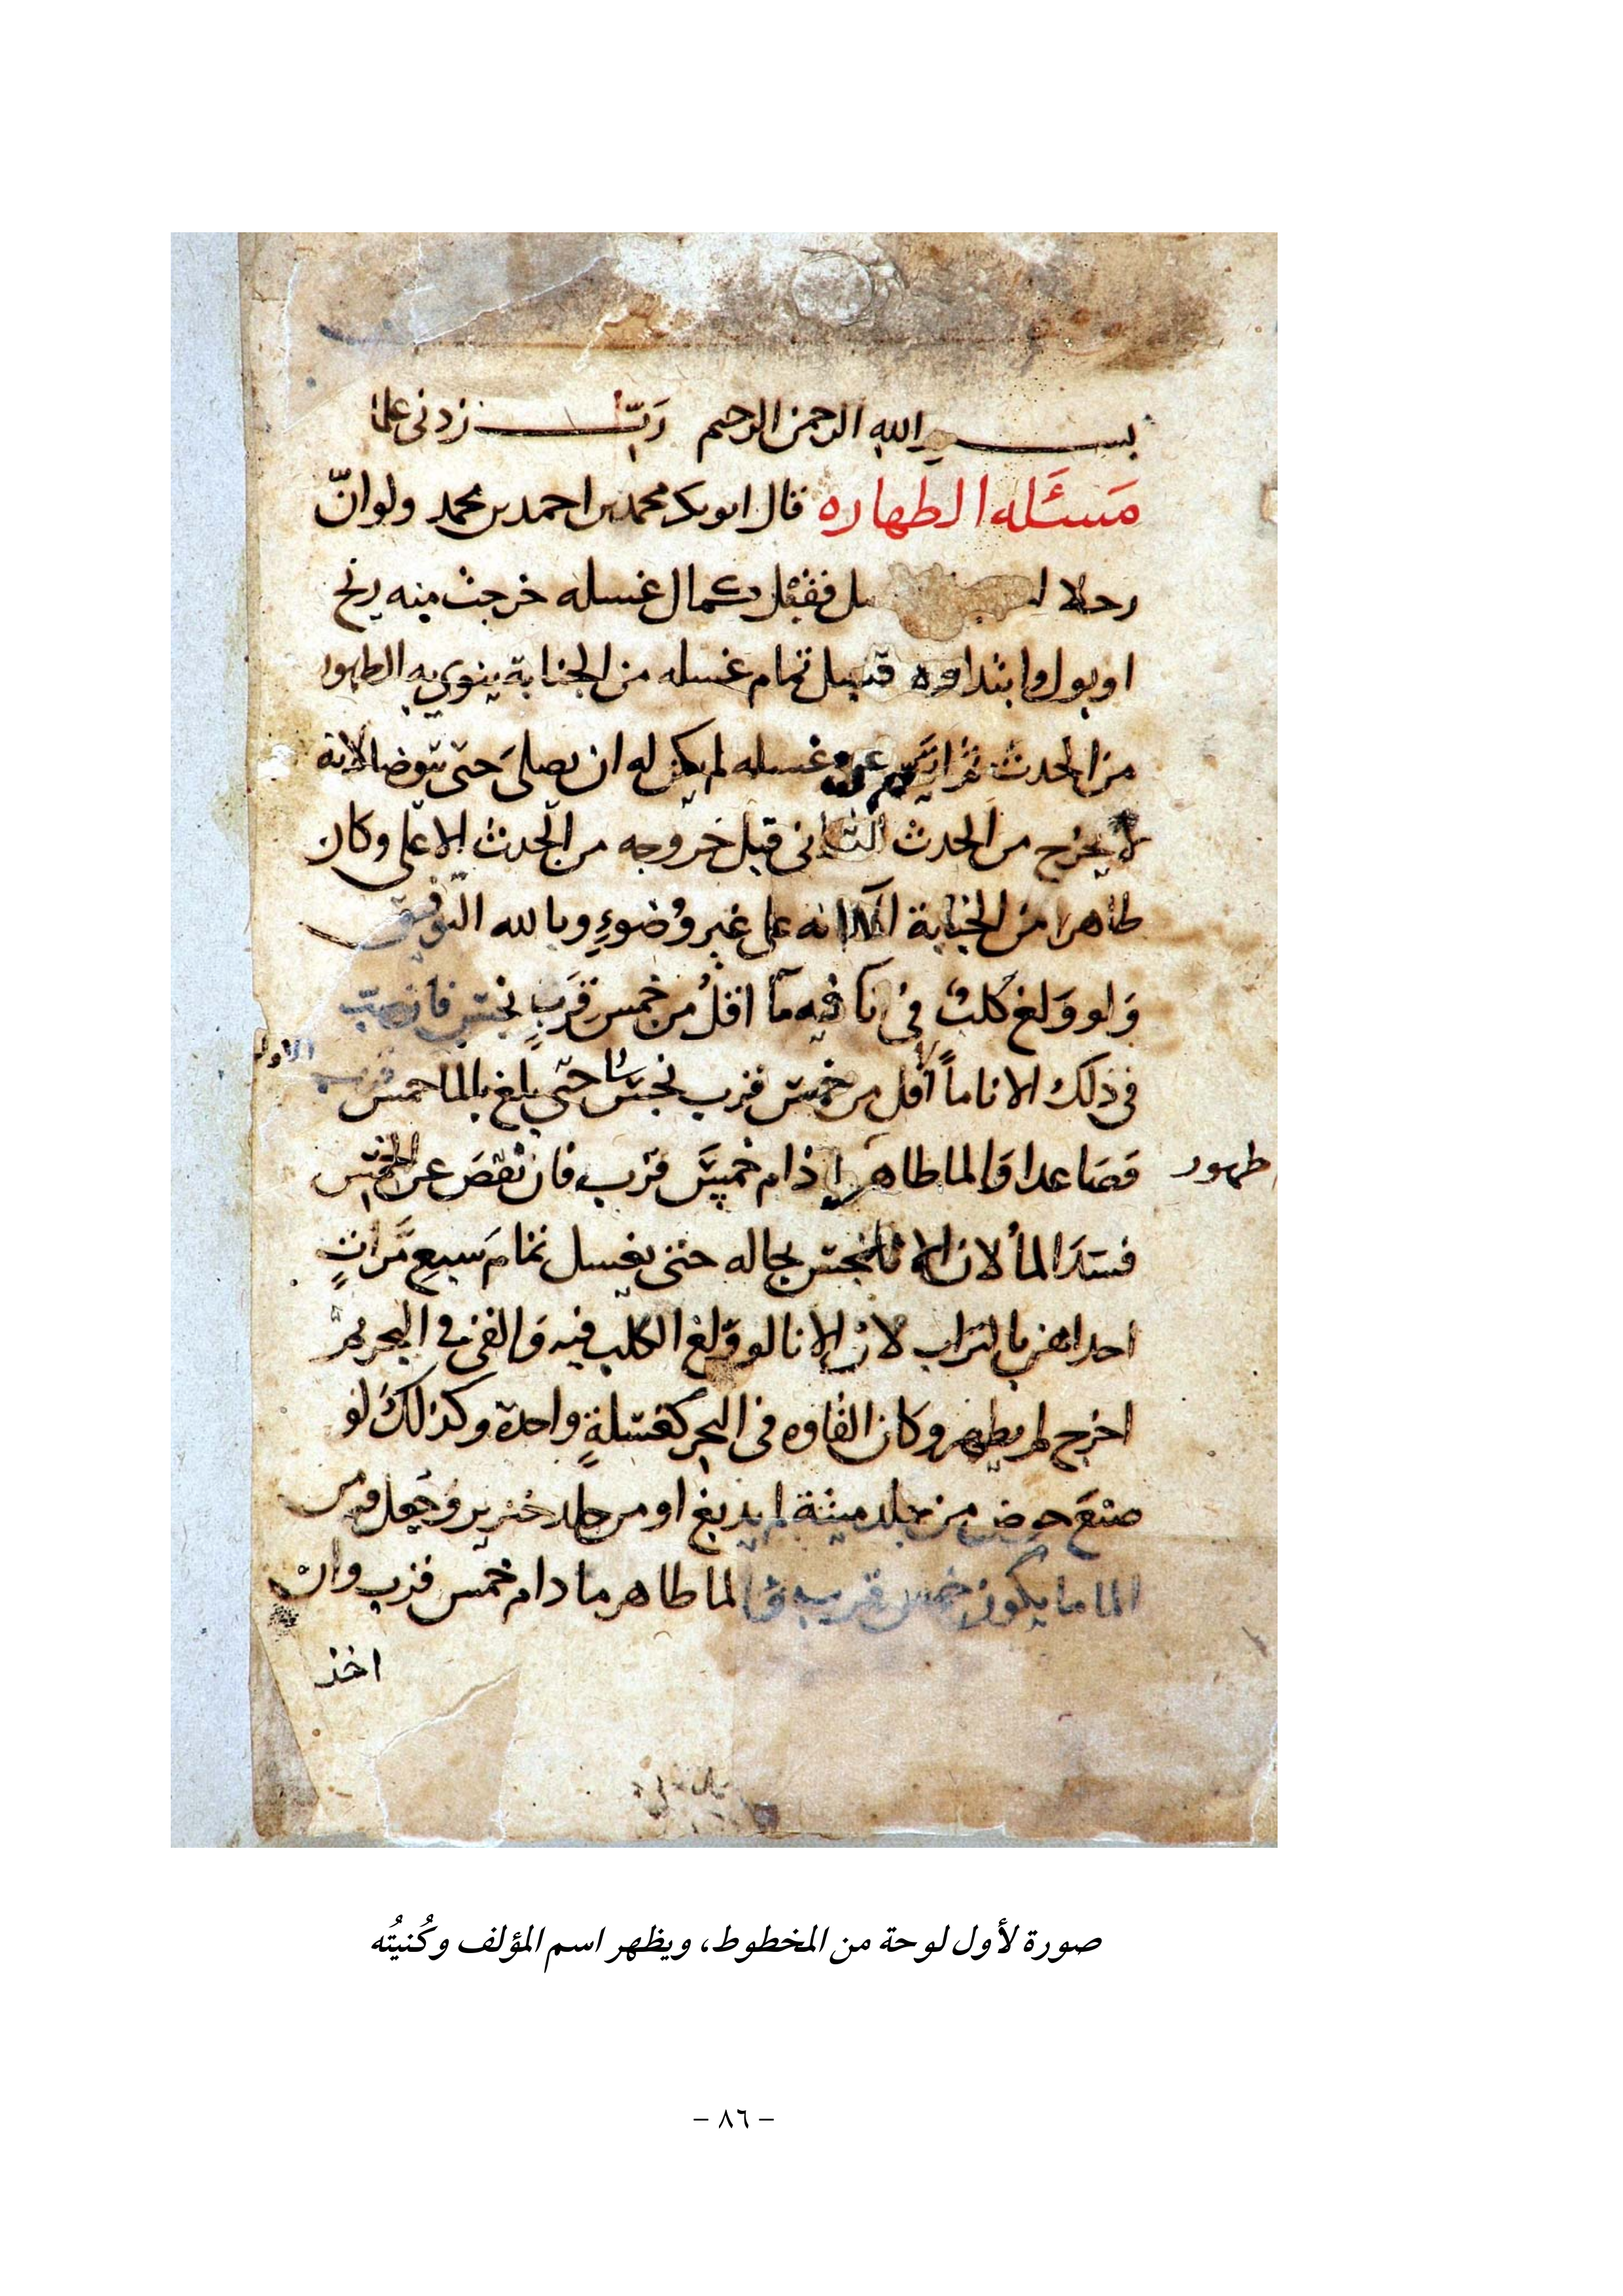 بسم الله الرحمن الرحيم رَبّ زدنى علما
مَسئَله الطهاره قال ابوبكر محمد بن احمد بن محمد ولو انّ
رجلا فقبل كمال غسله خرجت منه ريح
او بول وابتداوه قبل تمام غسله من الجنابة ينوي به الطهور
من الحدث ثم غسله لم يكن له ان يصلى حتى يتوضا لانه
لا يخرج من الحدث الثانى قبل خروجه من الحدث الاعلى وكان
طاهرا من الجنابة الا انه على غير وُضوءٍ وبالله التوفيق
وَلو وَلغ كلبٌ في انا فيه مآ اقلُ من خمس قرَبٍ نجس فان صب
فى ذلك الانا ماً اقل من خمس قرب نجس حتى بلغ بالما خمس قرب
الاول
فصَاعدا فالما طاهر اذام خمسَ قرب فان نقصَ عن الخمس
طهور
فسدَ الماُ لان الانا نجس بحاله حتى يغسل تمامَ سبع مَّراتٍ
احداهن بالتراب لان الانا لو وَلغ الكلب فيه وَالقى في البحر ثم
اخرج لم يطهر وكان القاوه فى البحر كغسلةٍ واحدة وكذلك لو
صنعَ حوض من جلد ميتة لم يدبغ او من جلد خنزير وَجعل فيه من
الما ما يكون خمس قرب فالما طاهر ما دام خمس قرب وان
اخذ
صورة لأول لوحة من المخطوط، ويظهر اسم المؤلف وكُنيتُه
– ٨٦ –